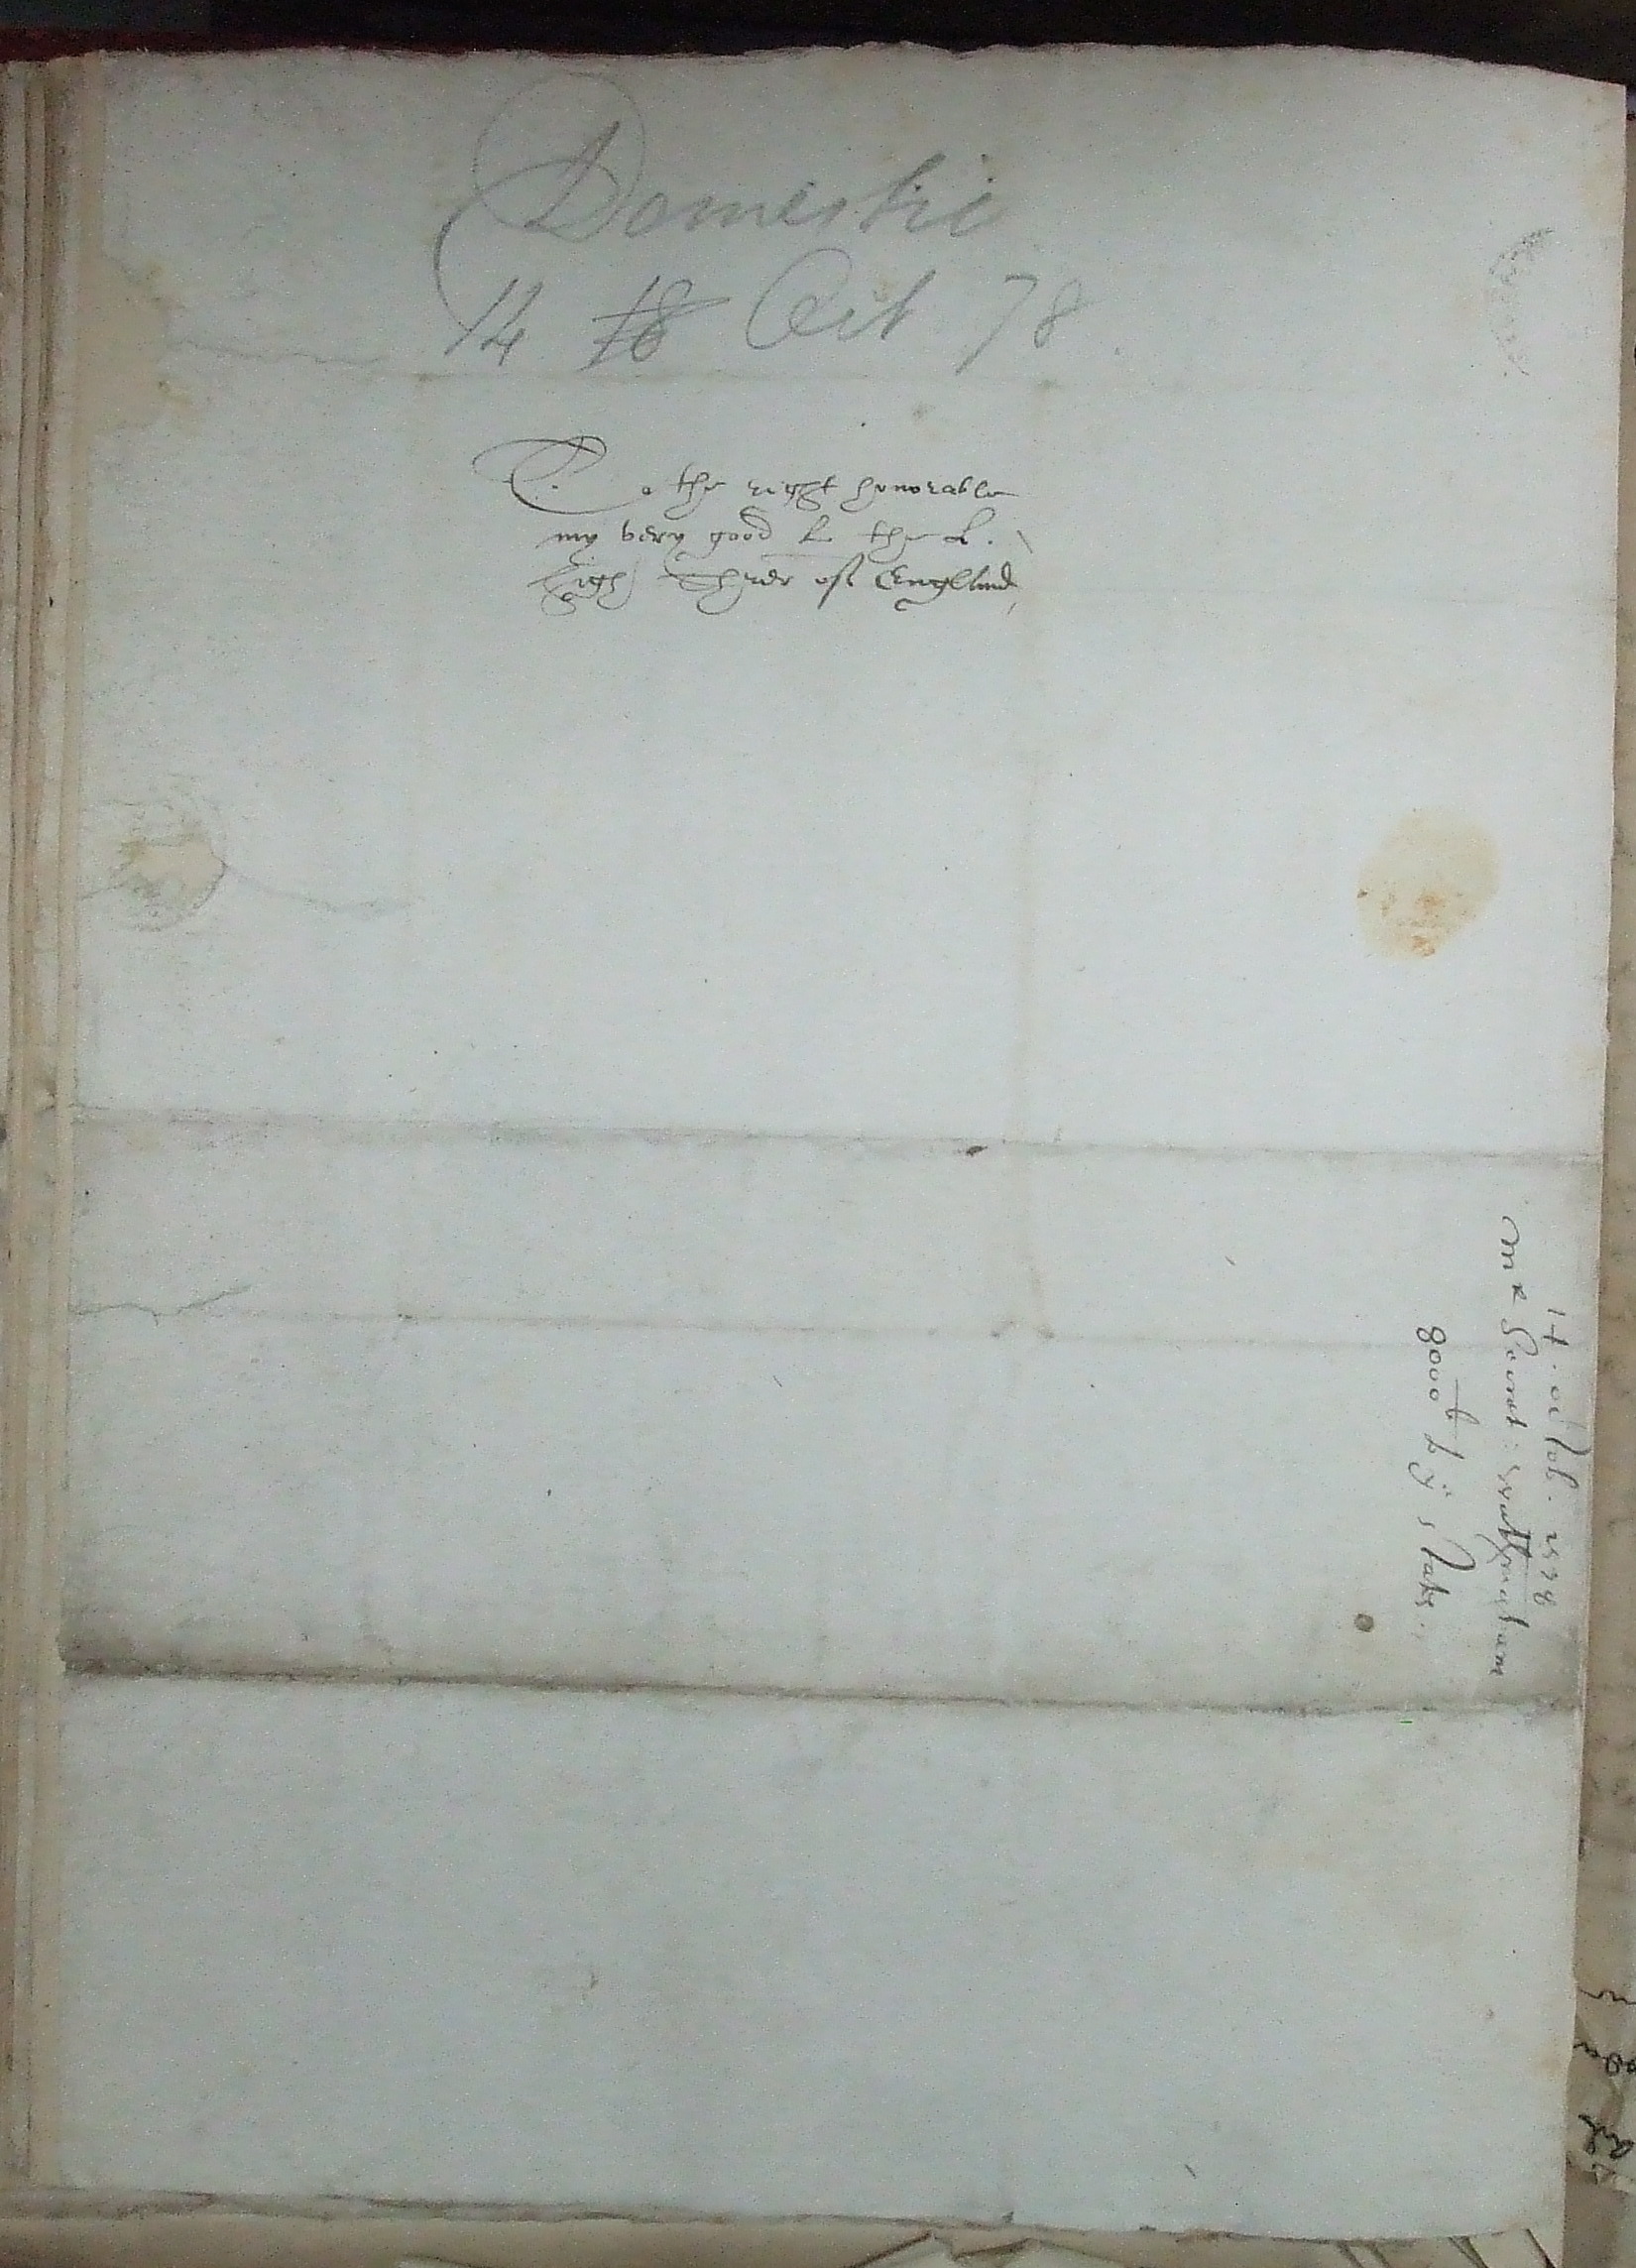 Domestic
14 18 Oct 78
To the right honorable
my very good L. the L.
high Threr of England
14. octob. 1578
Mr Secret: Walsingham
8000 li ij s